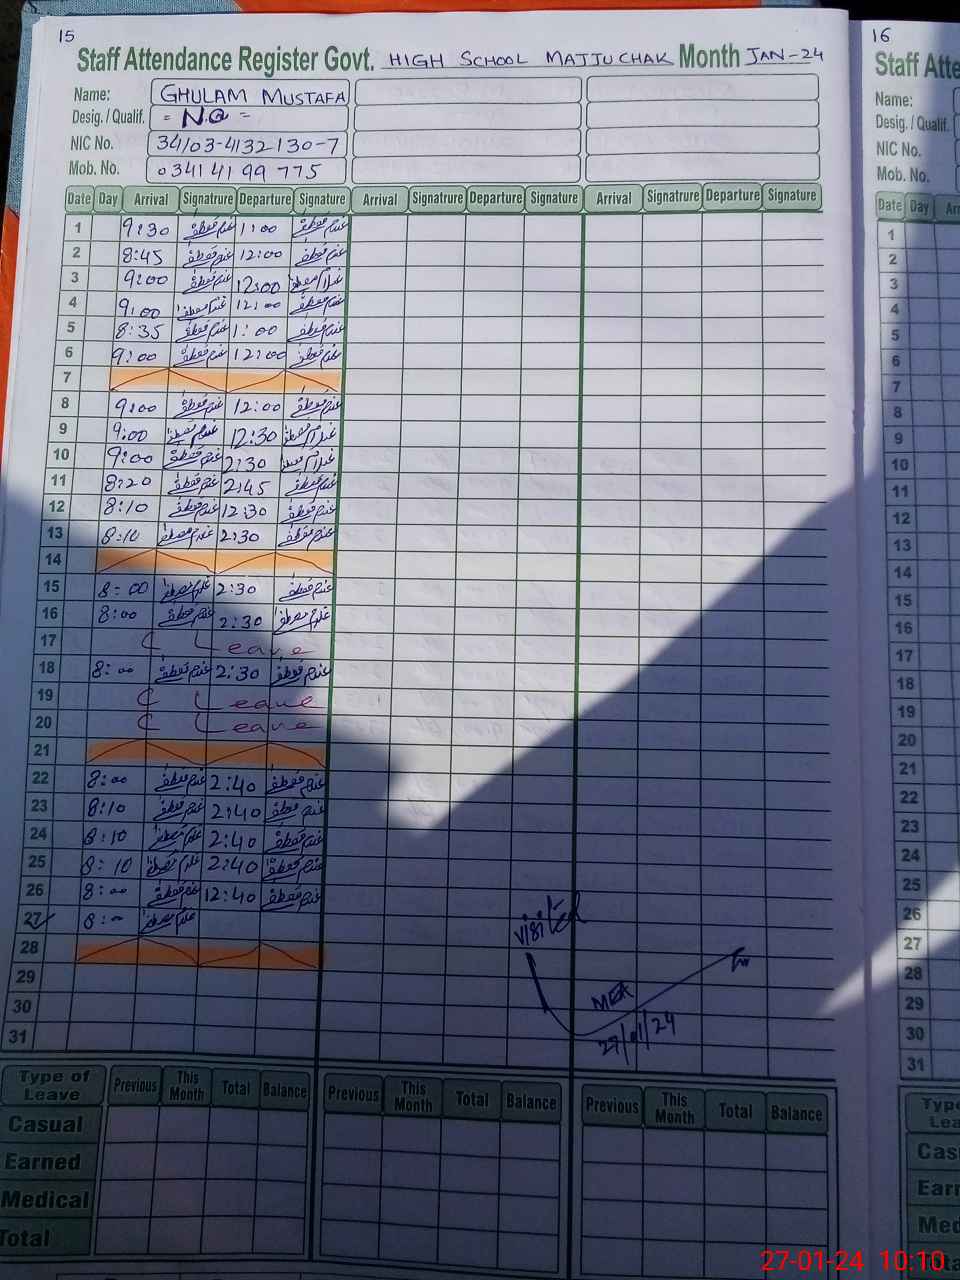 15
Staff Attendance Register Govt. HIGH SCHOOL MAJJUCHAK Month JAN-24
Name: GHULAM MUSTAFA
Desig. / Qualif. = N.Q =
NIC No. 34103-4132130-7
Mob. No. 0341 41 99 775
Date Day Arrival Signature Departure Signature Arrival Signature Departure Signature Arrival Signature Departure Signature
1 9:30 غلام مصطفیٰ 1:00 غلام مصطفیٰ
2 8:45 غلام مصطفیٰ 12:00 غلام مصطفیٰ
3 9:00 غلام مصطفیٰ 12:00 غلام مصطفیٰ
4 9:00 غلام مصطفیٰ 12:00 غلام مصطفیٰ
5 8:35 غلام مصطفیٰ 1:00 غلام مصطفیٰ
6 9:00 غلام مصطفیٰ 12:00 غلام مصطفیٰ
7
8 9:00 غلام مصطفیٰ 12:00 غلام مصطفیٰ
9 9:00 غلام مصطفیٰ 12:30 غلام مصطفیٰ
10 9:00 غلام مصطفیٰ 2:30 غلام مصطفیٰ
11 8:20 غلام مصطفیٰ 2:45 غلام مصطفیٰ
12 8:10 غلام مصطفیٰ 12:30 غلام مصطفیٰ
13 8:10 غلام مصطفیٰ 2:30 غلام مصطفیٰ
14
15 8:00 غلام مصطفیٰ 2:30 غلام مصطفیٰ
16 8:00 غلام مصطفیٰ 2:30 غلام مصطفیٰ
17 C Leave
18 8:00 غلام مصطفیٰ 2:30 غلام مصطفیٰ
19 C Leave
20 C Leave
21
22 8:00 غلام مصطفیٰ 2:40 غلام مصطفیٰ
23 8:10 غلام مصطفیٰ 2:40 غلام مصطفیٰ
24 8:10 غلام مصطفیٰ 2:40 غلام مصطفیٰ
25 8:10 غلام مصطفیٰ 2:40 غلام مصطفیٰ
26 8:00 غلام مصطفیٰ 12:40 غلام مصطفیٰ
27 8:00 غلام مصطفیٰ
28
29
30
31
Visited
MEA
27/01/24
Type of Leave Previous This Month Total Balance Previous This Month Total Balance Previous This Month Total Balance
Casual
Earned
Medical
Total
16
Staff Atte
Name:
Desig. / Qualif.
NIC No.
Mob. No.
Date Day Arr
1
2
3
4
5
6
7
8
9
10
11
12
13
14
15
16
17
18
19
20
21
22
23
24
25
26
27
28
29
30
31
Type
Lea
Cas
Earn
Med
27-01-24 10:10